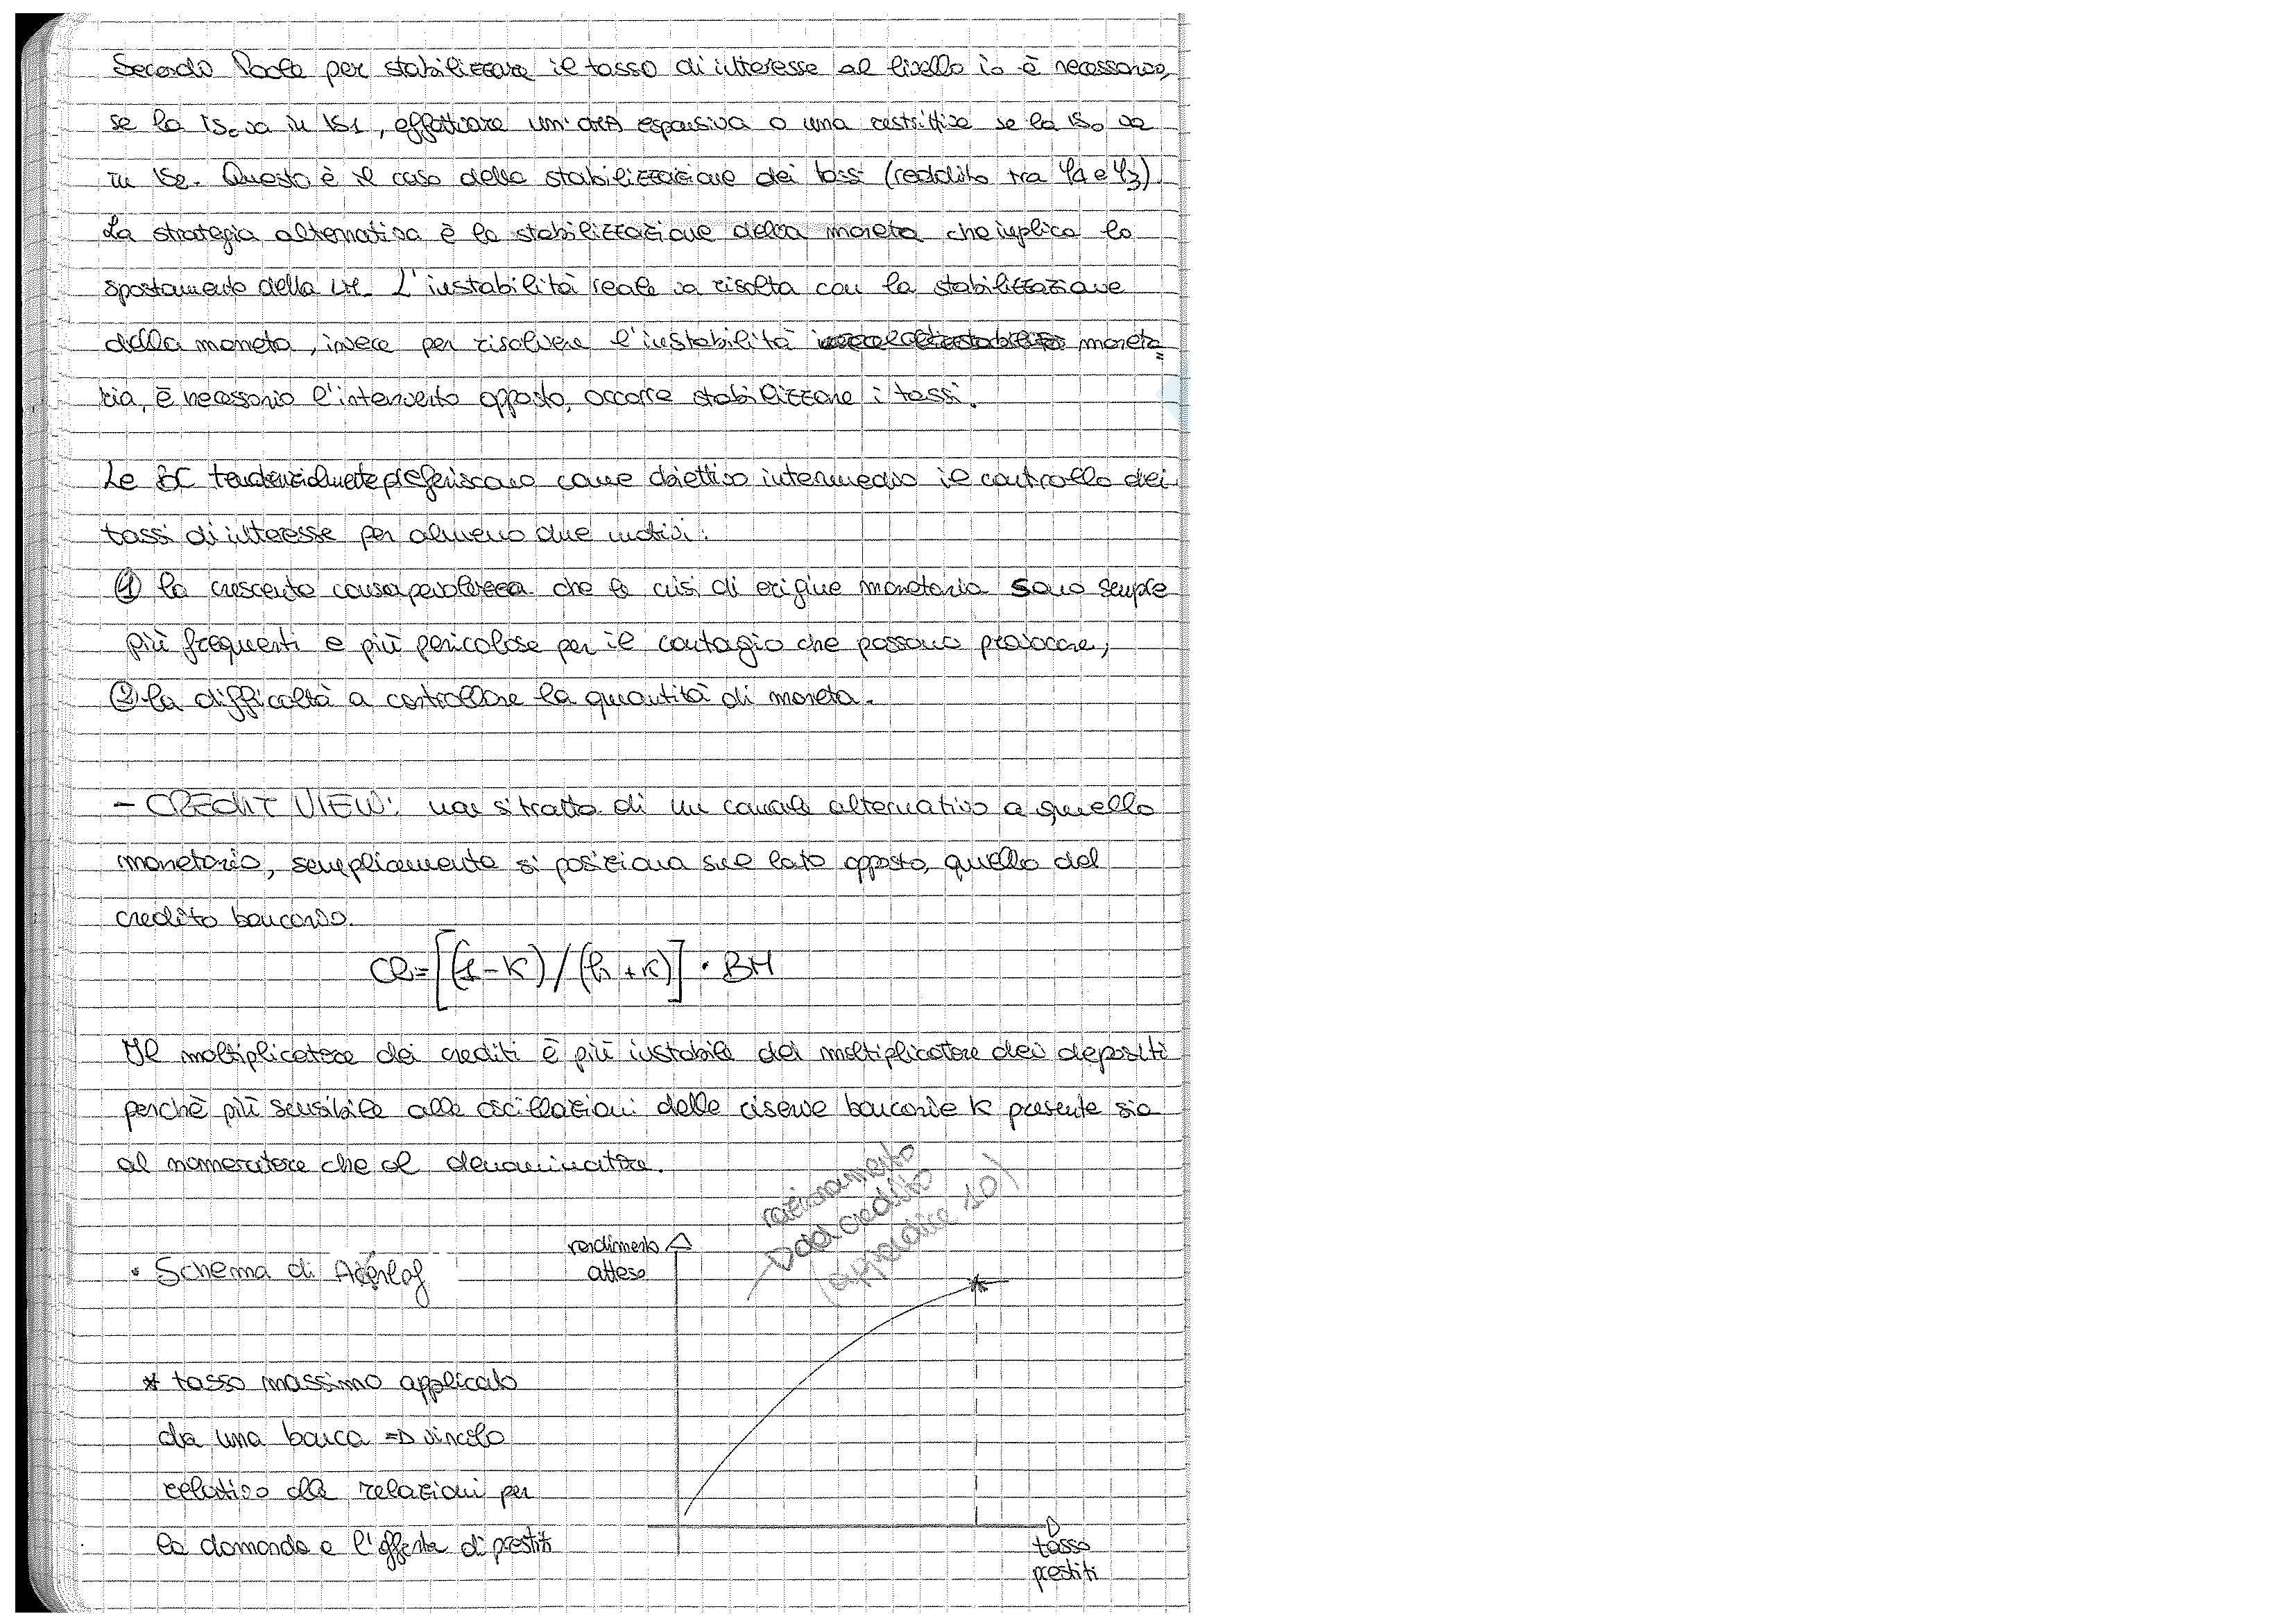 Secondo Poole per stabilizzare il tasso di interesse al livello i₀ è necessario,
se la IS₀ va in IS1, effettuare un'OMA espansiva o una restrittiva se la IS₀ va
in IS2. Questo è il caso della stabilizzazione dei tassi (reddito tra Y4 e Y3).
La strategia alternativa è la stabilizzazione della moneta che implica lo
spostamento della LM. L'instabilità reale va risolta con la stabilizzazione
della moneta, invece per risolvere l'instabilità moneta=
ria, è necessario l'intervento opposto, occorre stabilizzare i tassi.
Le BC tendenzialmente preferiscono come obiettivo intermedio il controllo dei
tassi di interesse per almeno due motivi:
① la crescente consapevolezza che le crisi di origine monetaria sono sempre
più frequenti e più pericolose per il contagio che possono provocare;
② la difficoltà a controllare la quantità di moneta.
- CREDIT VIEW: non si tratta di un canale alternativo a quello
monetario, semplicemente si posiziona sul lato opposto, quello del
credito bancario.
CR = [(1-K)/(h+K)] · BM
Il moltiplicatore dei crediti è più instabile del moltiplicatore dei depositi
perchè più sensibile alle oscillazioni delle riserve bancarie K presente sia
al numeratore che al denominatore.
razionamento
del credito
(appendice 10)
• Schema di Akerlof
rendimento
atteso
* tasso massimo applicato
da una banca => vincolo
relativo alle relazioni per
la domanda e l'offerta di prestiti
tasso
prestiti